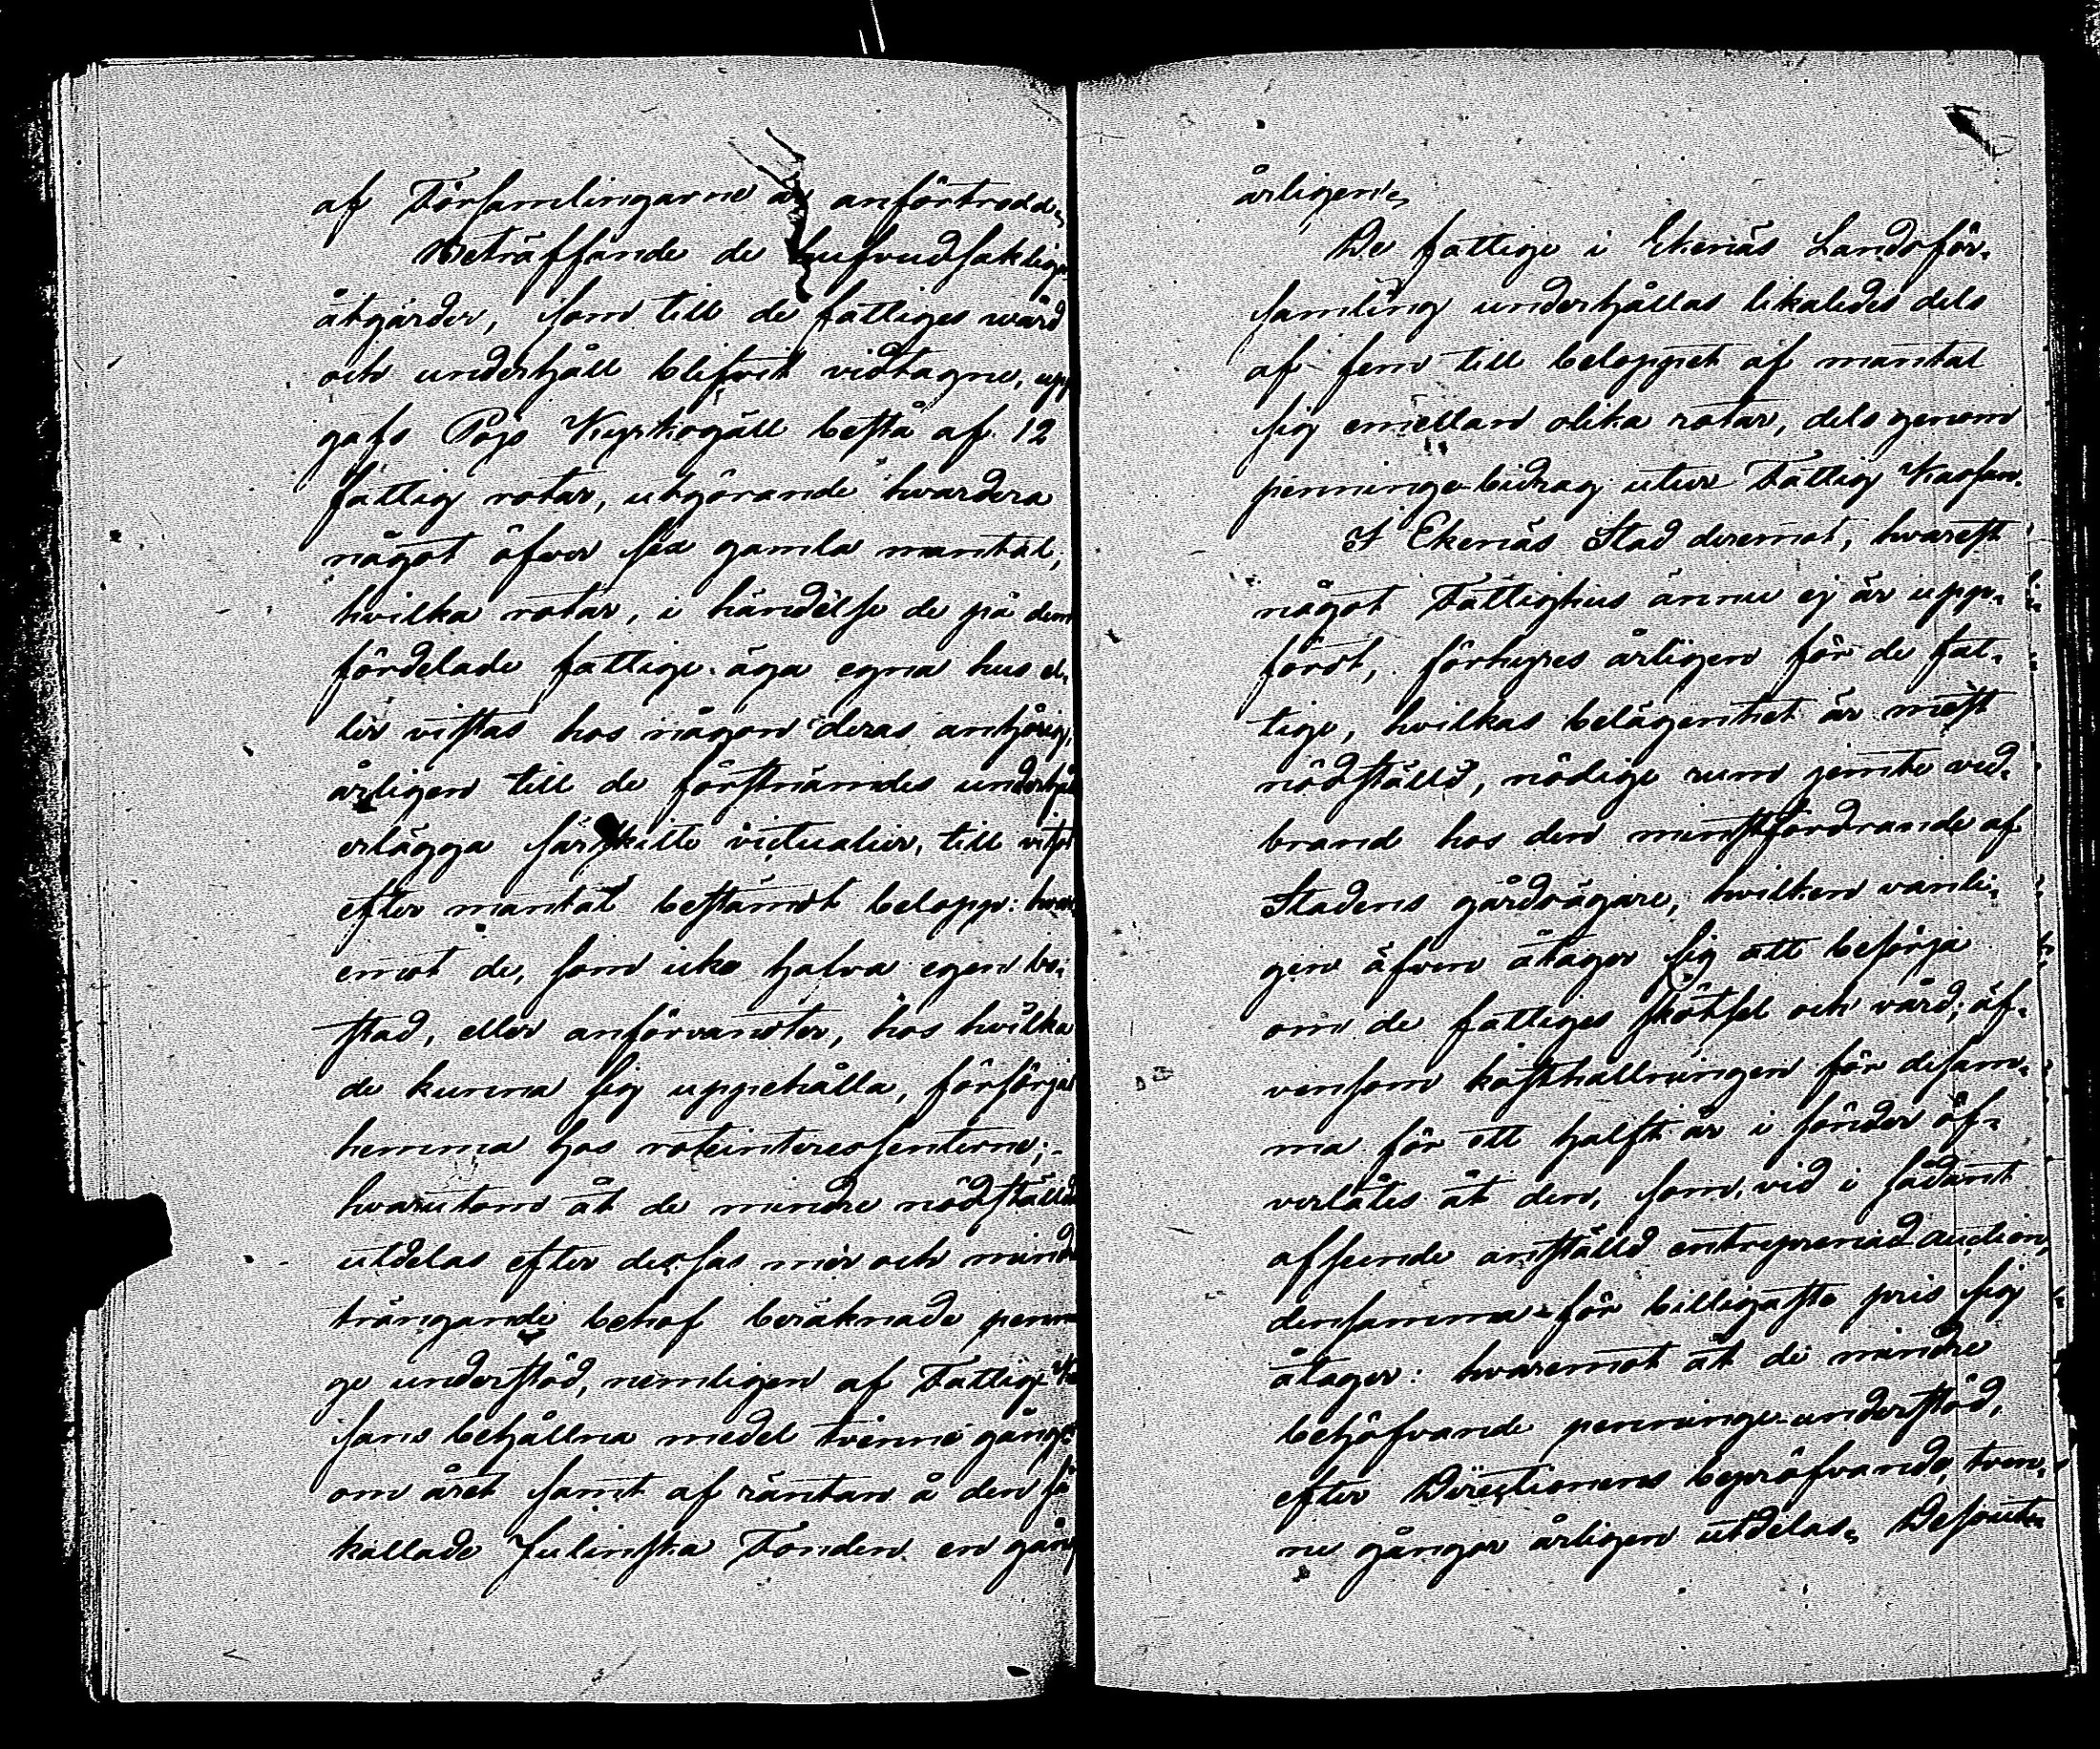 af Församlingarne är anförtrodd„
Beträffande de hufvudsaklige
åtgärder, som till de fattiges wård
och underhåll blifvit vidtagne, upp
gafs Pojo Kyrkogäll bestå af 12
fattig rotar, utgörande hvardera
något öfver sex gamla mantal,
hvilka rotar, i händelse de på dem
fördelade fattige äga egna hus el„
ler vistas hos någon deras anhörig,
årligen till de förstnämdes underhåll
erlägga särskilte victualier, till visst
efter mantal bestämdt belopp: hvar
emot de, som icke hafva egen bo„
stad, eller anförvandter, hos hvilka
de kunna sig uppehålla, försörjas
hemma hos roteinteressenterne;
hvarutom åt de mindre nödställda
utdelas efter dessas mer och mindre
trängande behof beräknade pennin
ge understöd, nemligen af Fattig Ka
sans behållna medel tvenne gånger
om året samt af räntan å den så
kallade Julinska Fonden en gång
årligen„
De fattige i Ekenäs Landsför„
samling underhållas likaledes dels
af fem till beloppet af mantal
sig emellan olika rotar, dels genom
penninge-bidrag utur Fattig Kassan.
I Ekenäs Stad deremot, hvarest
något Fattighus ännu ej är upp„
fördt, förhyres årligen för de fat„
tige, hvilkas belägenhet är mest
nödställd, nödige rum jemte ved„
brand hos den minstfordrande af
Stadens gårdsägare, hvilken vanli„
gen äfven åtager sig att besörja
om de fattiges skötsel och vård; äf„
vensom kosthållningen för desam„
ma för ett halft år i sönder öf„
verlåtes åt den, som vid i sådant
afseende anställd entreprenad auction,
densamma för billigaste pris sig
åtager: hvaremot åt de mindre
behöfvande penninge-understöd,
efter Directionens bepröfvande, tven„
ne gånger årligen utdelas„ Dessut„